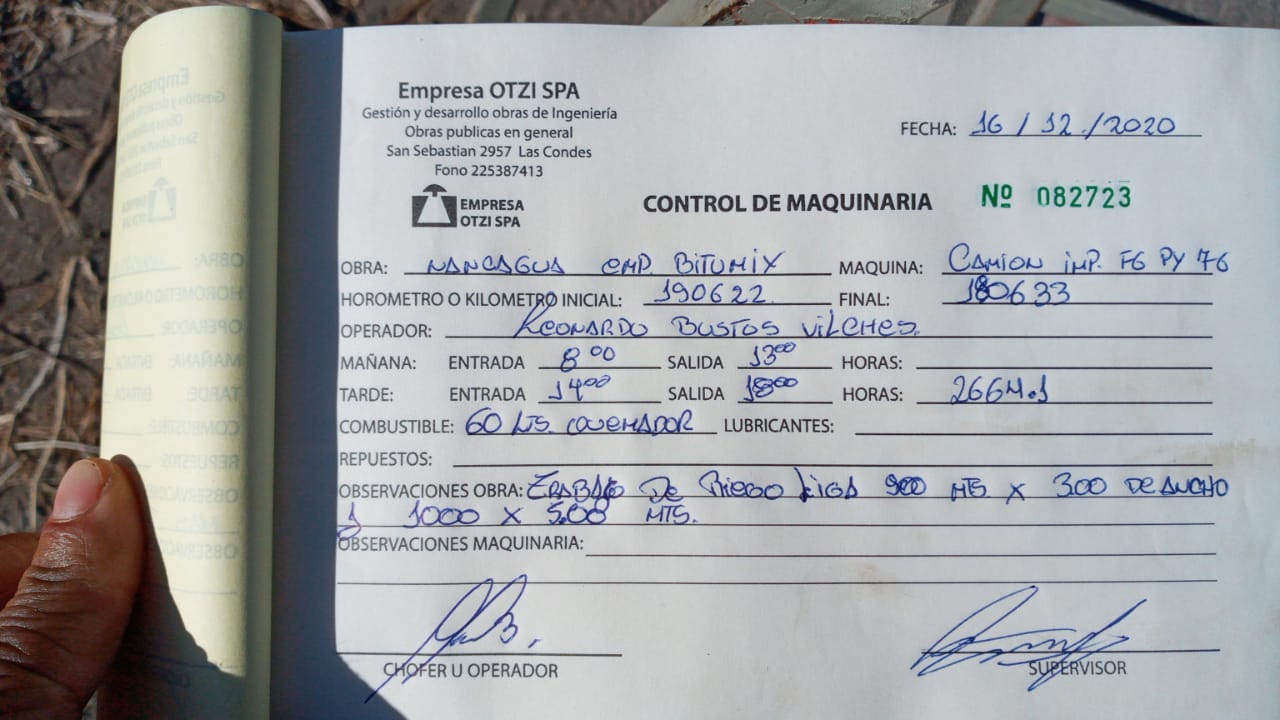 Empresa OTZI SPA
Gestión y desarrollo obras de Ingeniería
Obras publicas en general
San Sebastian 2957 Las Condes
Fono 225387413
EMPRESA
OTZI SPA
FECHA: 16 / 12 / 2020
CONTROL DE MAQUINARIA Nº 082723
OBRA: NANCAGUA EMP. BITUMIX MAQUINA: CAMION IMP. FG PY 76
HOROMETRO O KILOMETRO INICIAL: 190622 FINAL: 190633
OPERADOR: LEONARDO BUSTOS VILCHES.
MAÑANA: ENTRADA 8 00 SALIDA 13 00 HORAS:
TARDE: ENTRADA 14 00 SALIDA 18 00 HORAS: 2664.1
COMBUSTIBLE: 60 LTS. QUEMADOR LUBRICANTES:
REPUESTOS:
OBSERVACIONES OBRA: TRABAJO DE RIEGO LIGA 900 MTS X 300 DE ANCHO
y 1000 X 5.00 MTS.
OBSERVACIONES MAQUINARIA:
CHOFER U OPERADOR SUPERVISOR